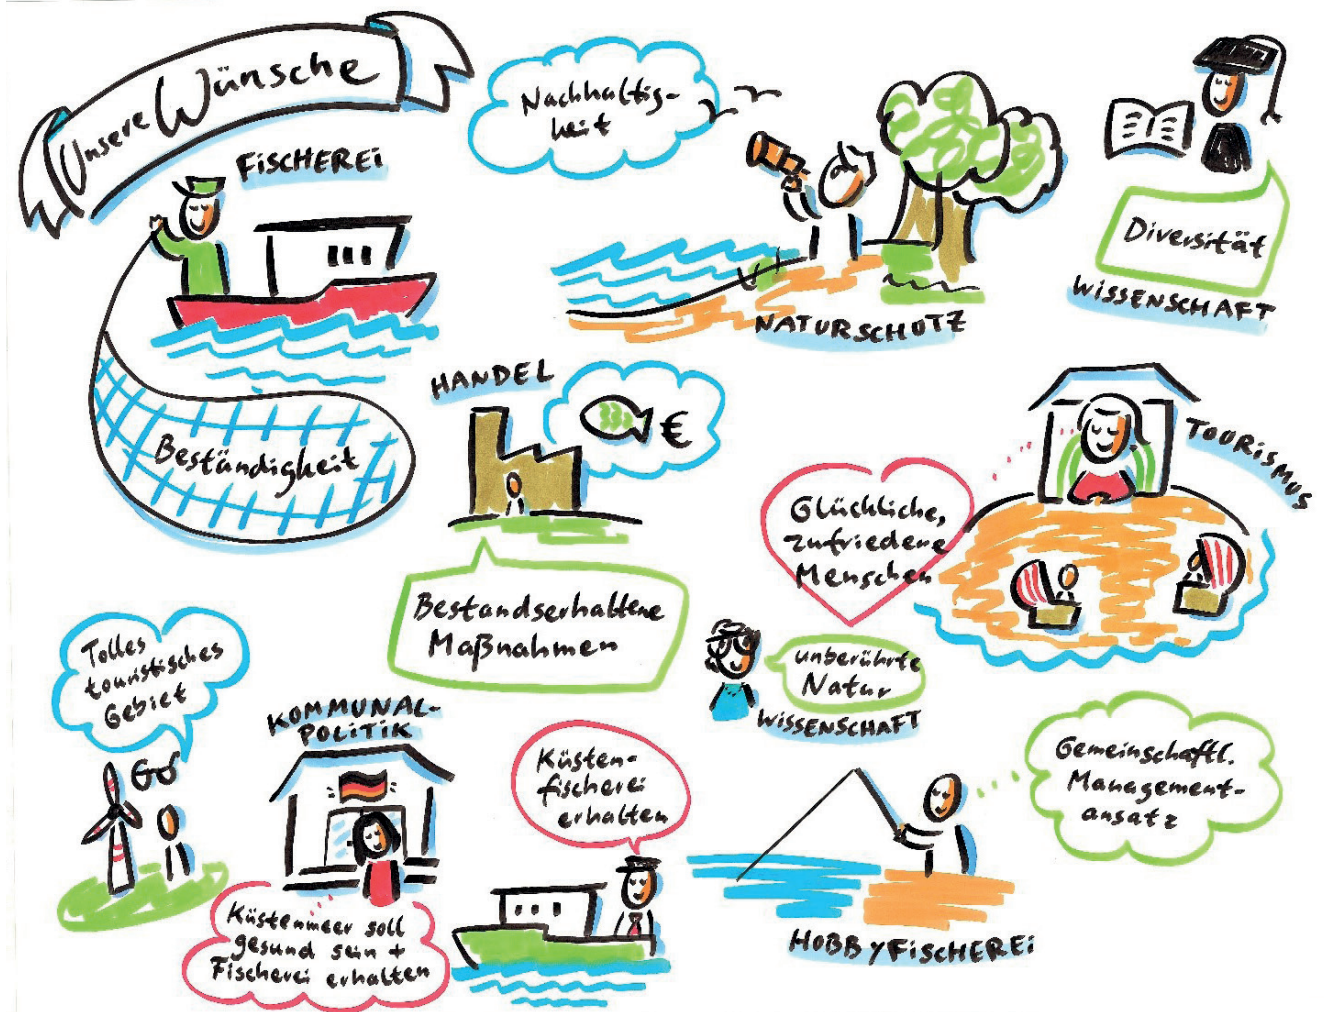 Unsere Wünsche
FiSCHEREi
Beständigkeit
Nachhaltig-
keit
NATURSCHUTZ
Diversität
WiSSENSCHAFT
HANDEL
€
Bestandserhaltene
Maßnahmen
TOURiSMUS
Glückliche,
zufriedene
Menschen
unberührte
Natur
WiSSENSCHAFT
Tolles
touristisches
Gebiet
KOMMUNAL-
POLiTiK
Küstenmeer soll
gesund sein +
Fischerei erhalten
Küsten-
fischerei
erhalten
Gemeinschaftl.
Management-
ansatz
HOBBYFiSCHEREi